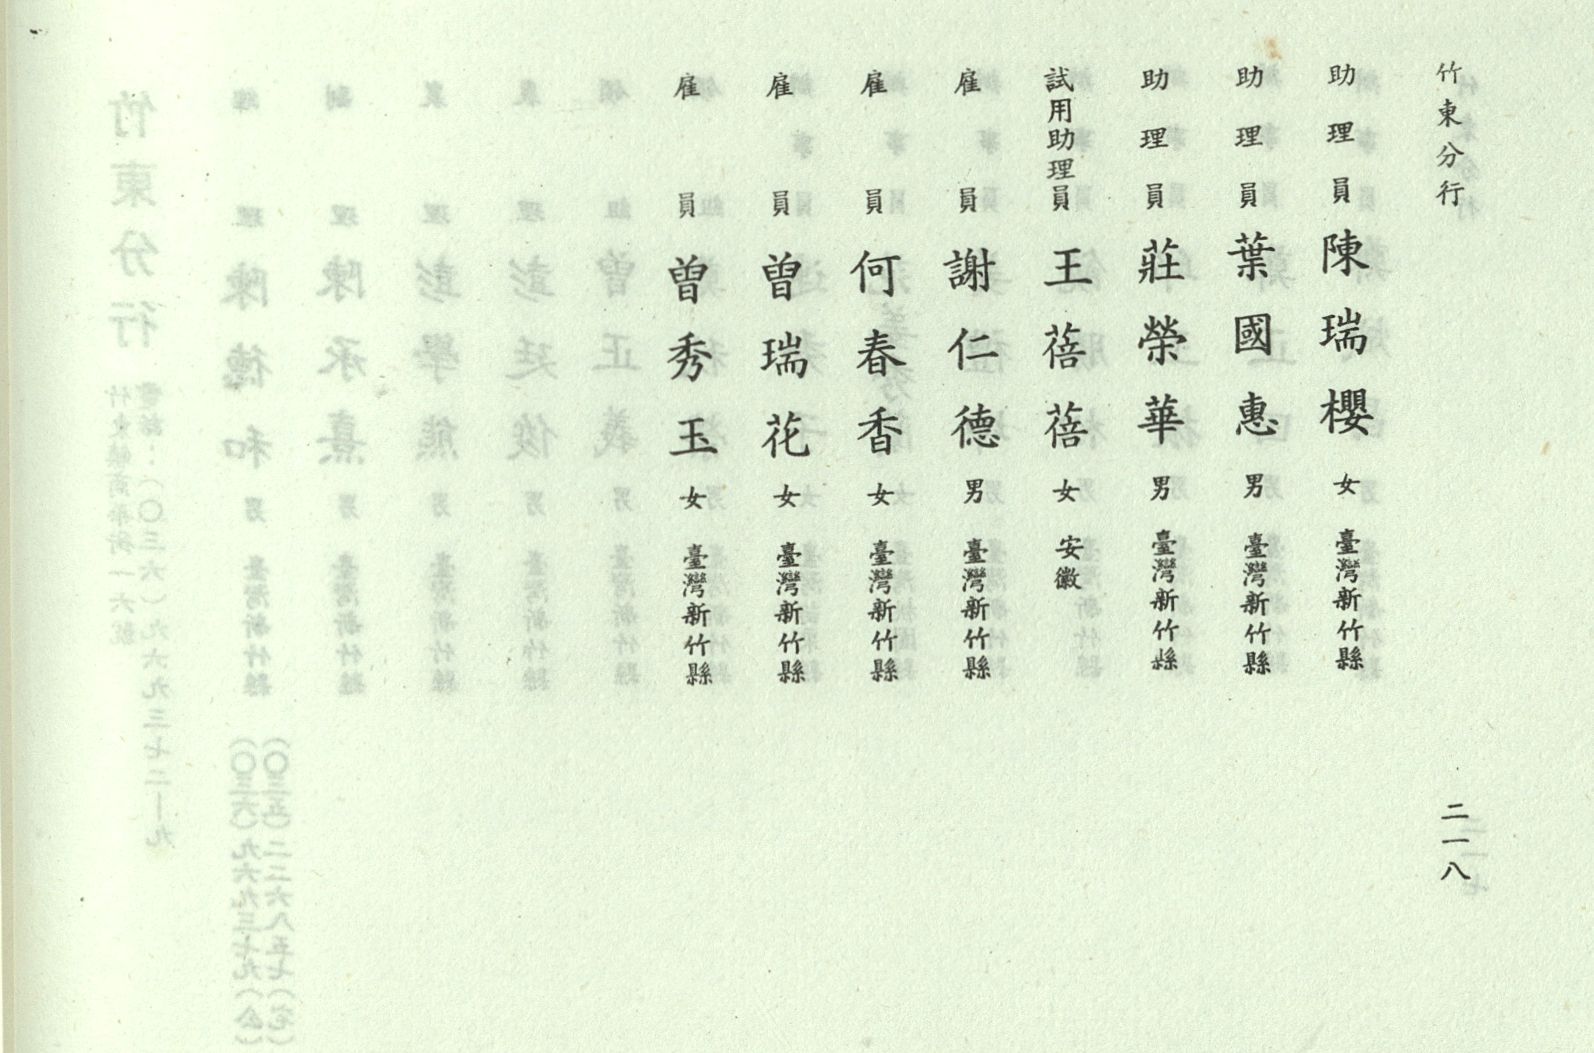 竹東分行
助理員 陳瑞櫻 女 臺灣新竹縣
助理員 葉國惠 男 臺灣新竹縣
助理員 莊榮華 男 臺灣新竹縣
試用助理員 王蓓蓓 女 安徽
雇員 謝仁德 男 臺灣新竹縣
雇員 何春香 女 臺灣新竹縣
雇員 曾瑞花 女 臺灣新竹縣
雇員 曾秀玉 女 臺灣新竹縣
二一八